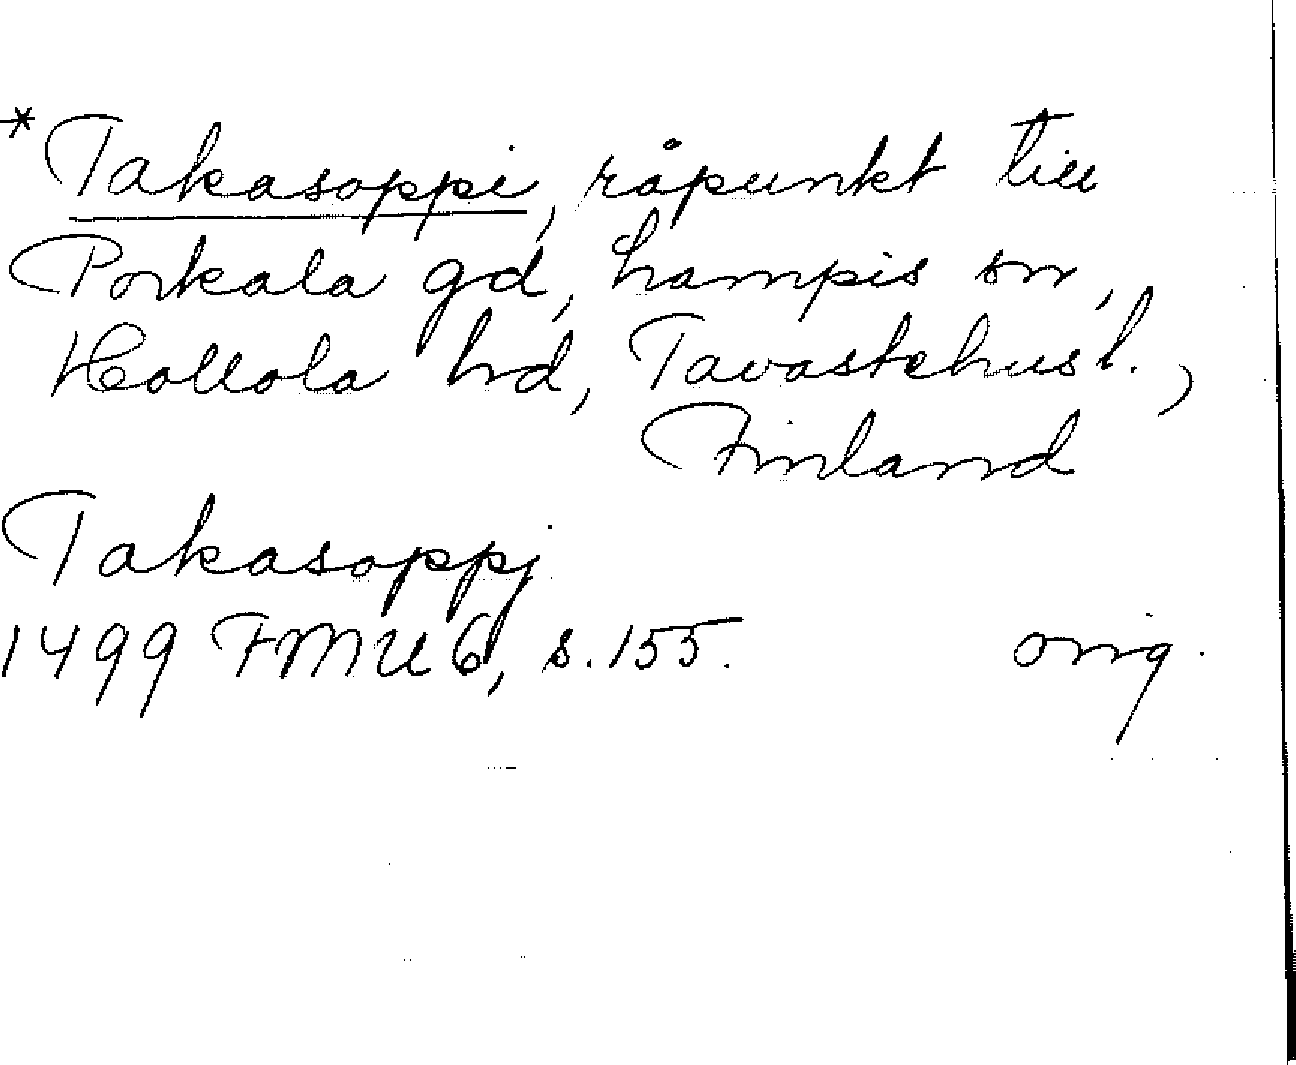 *Takasoppi, råpunkt till
Porkala gd, Lampis sn,
Hollola hd, Tavastehus l.,
Finland
Takasoppj
1499 FMU 6, s. 155. orig.